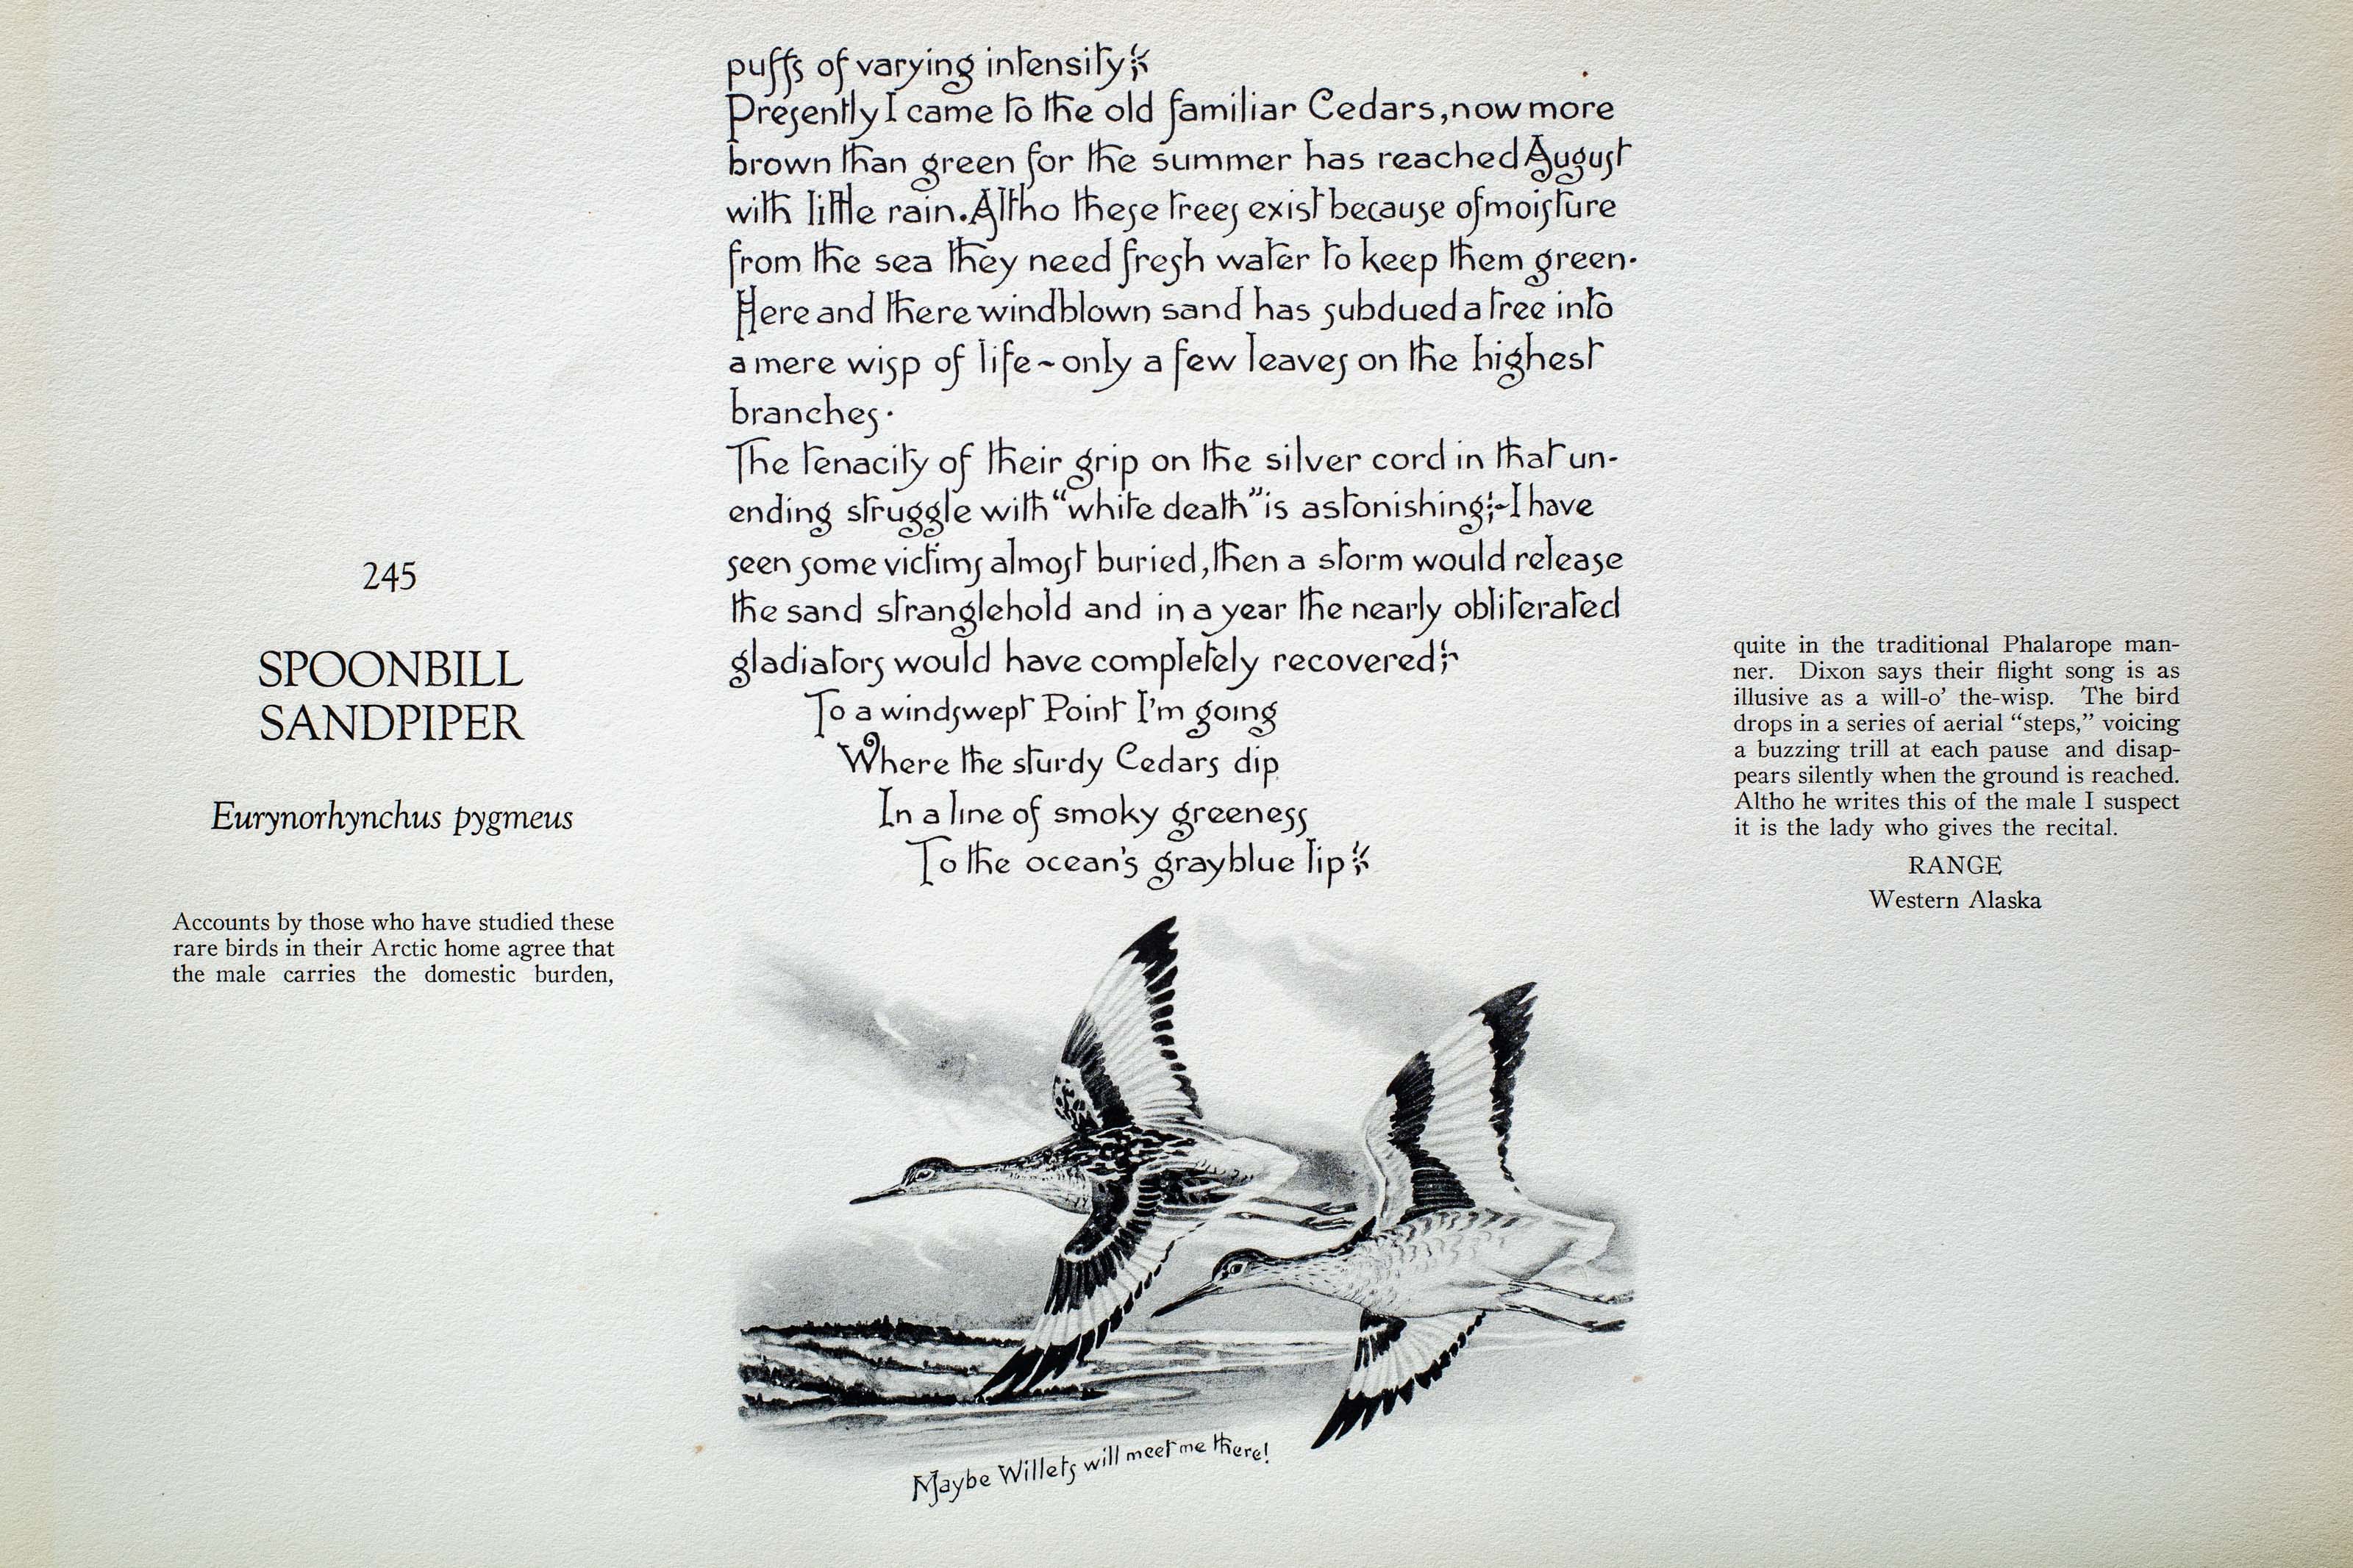 puffs of varying intensity
Presently I came to the old familiar Cedars, now more
brown than green for the summer has reached August
with little rain. Altho these trees exist because of moisture
from the sea they need fresh water to keep them green.
Here and there windblown sand has subdued a tree into
a mere wisp of life ~ only a few leaves on the highest
branches.
The tenacity of their grip on the silver cord in that un-
ending struggle with "white death" is astonishing;~ I have
seen some victims almost buried, then a storm would release
the sand stranglehold and in a year the nearly obliterated
gladiators would have completely recovered;
To a windswept Point I'm going
Where the sturdy Cedars dip
In a line of smoky greeness
To the ocean's grayblue lip
Maybe Willets will meet me there!
245
SPOONBILL
SANDPIPER
Eurynorhynchus pygmeus
Accounts by those who have studied these
rare birds in their Arctic home agree that
the male carries the domestic burden,
quite in the traditional Phalarope man-
ner. Dixon says their flight song is as
illusive as a will-o' the-wisp. The bird
drops in a series of aerial "steps," voicing
a buzzing trill at each pause and disap-
pears silently when the ground is reached.
Altho he writes this of the male I suspect
it is the lady who gives the recital.
RANGE
Western Alaska